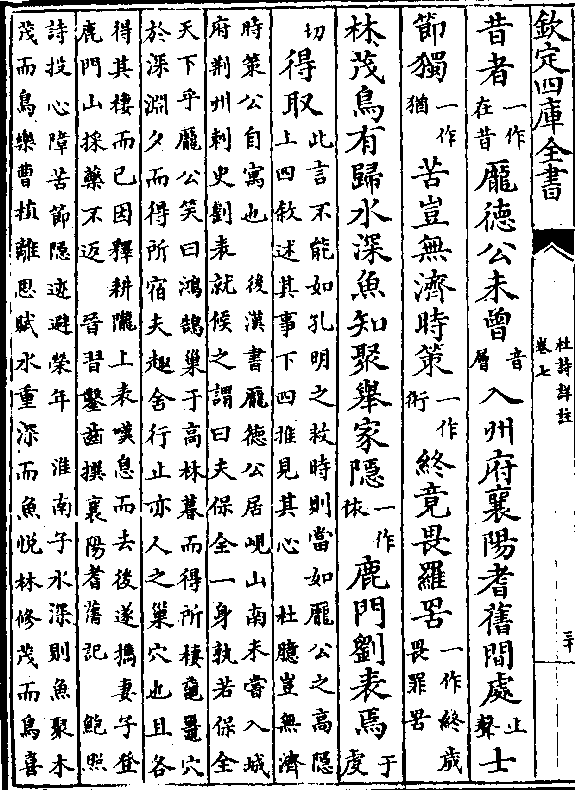 欽定四庫全書
杜詩詳註
卷七
昔者一作在昔龐德公未曾音層入州府襄陽耆舊間處上聲士
節獨一作猶苦豈無濟時策一作術終竟畏羅罟一作終歲畏罪罟
林茂鳥有歸水深魚知聚舉家隱一作依鹿門劉表焉于虔
切得取此言不能如孔明之救時則當如龐公之高隱
上四敘述其事下四推見其心 杜臆豈無濟
時策公自寓也 後漢書龐德公居峴山南未嘗入城
府荆州刺史劉表就候之謂曰夫保全一身孰若保全
天下乎龐公笑曰鴻鵠巢于高林暮而得所棲黿鼉穴
於深淵夕而得所宿夫趣舍行止亦人之巢穴也且各
得其棲而已因釋耕隴上表嘆息而去後遂攜妻子登
鹿門山採藥不返 晉習鑿齒撰襄陽耆舊記 鮑照
詩投心障苦節隱迹避榮年 淮南子水深則魚聚木
茂而鳥樂曹植離思賦水重深而魚悦林修茂而鳥喜